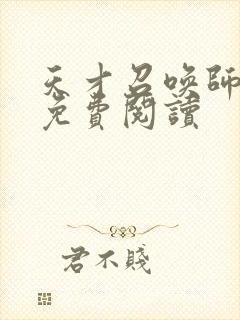 天才召喚師
免費閱讀
君不賤